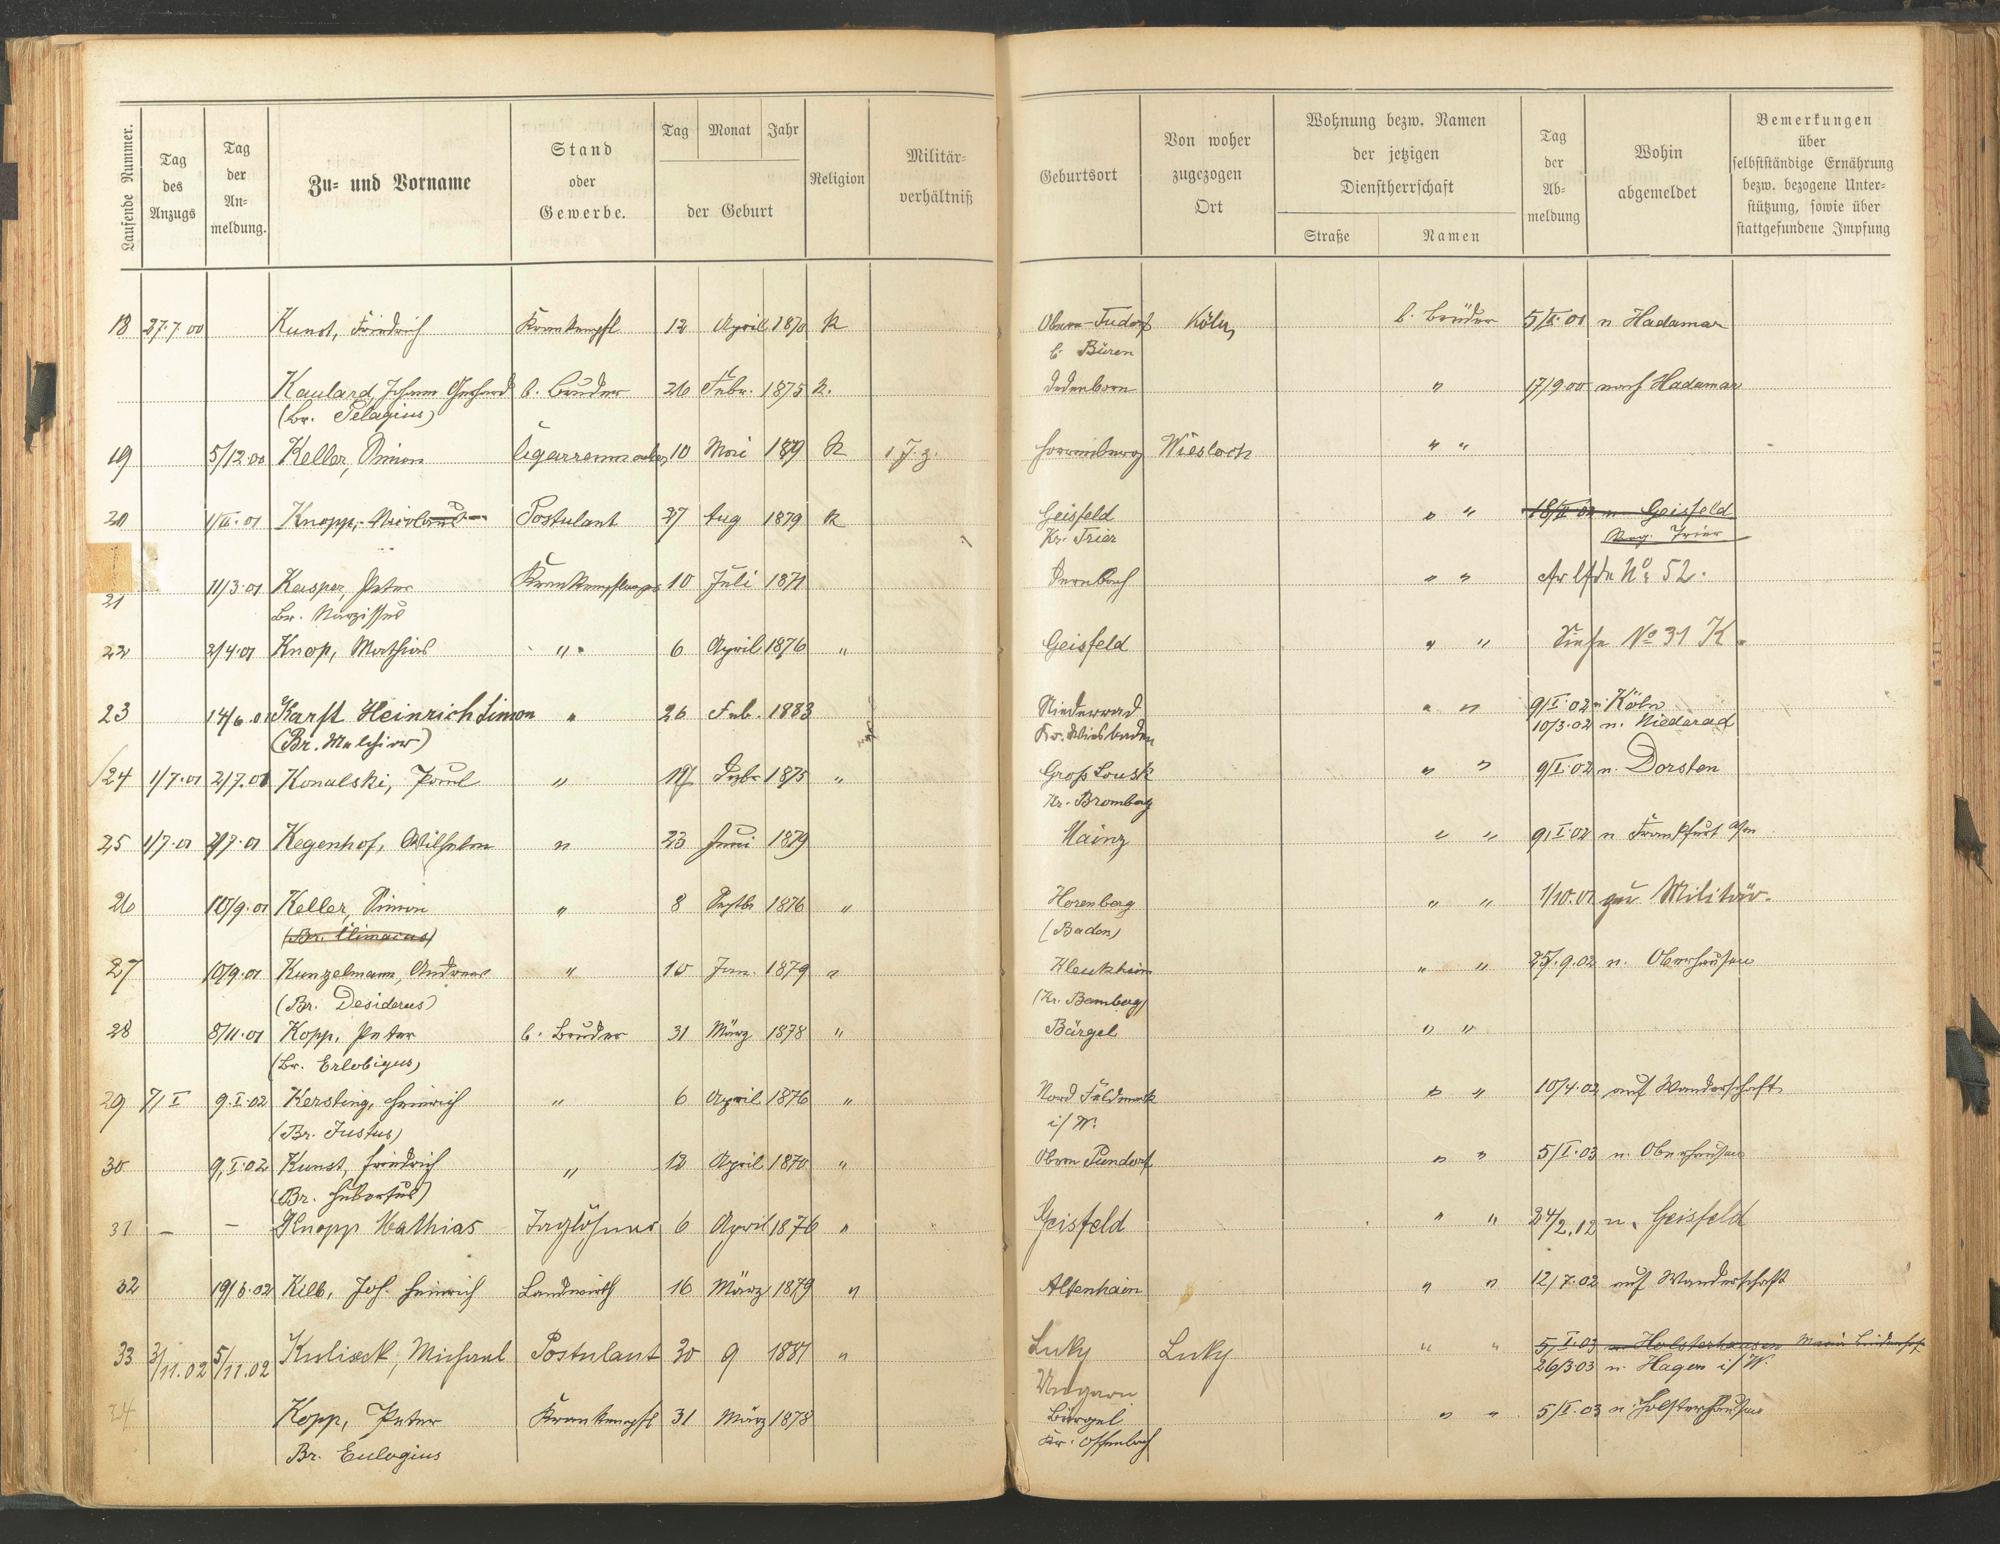 Laufende Nummer.
Tag des Anzugs
Tag der Anmeldung.
Zu- und Vorname
Stand oder Gewerbe.
Tag Monat Jahr
der Geburt
Religion
Militärverhältniß
Geburtsort
Von woher zugezogen Ort
Wohnung bezw. Namen der jetzigen Dienstherrschaft
Straße Namen
Tag der Abmeldung
Wohin abgemeldet
Bemerkungen über selbstständige Ernährung bezw. bezogene Unterstützung, sowie über stattgefundene Impfung
18 27.7.00 Kunst, Friedrich Krankenpfl 12 April 1870 K Köln, b. Brüder 5/II.01 n Hadamar
b. Büren
Kaulard, Johann Gerhard b. Bruder 26 Febr. 1875 K. Dedenborn " 17/9.00 nach Hadamar
(Br. Pelagius)
19 5/12.00 Keller, Simon Cigarrenmacher 10 Mai 1879 K Wiesloch " "
20 Knopp, Postulant 27 Aug 1879 K Geisfeld " " n. Geisfeld
Kr. Trier Reg. Trier
21 11/3.01 Kaspar, Peter 10 Juli 1871 Dernbach " " No 52.
Br. Narzissus
22 2/4.01 Knop, Mathias " 6 April 1876 " Geisfeld " " Siehe No 31 K.
23 14/6.01 Karft Heinrich Simon " 26 Feb. 1883 Niederrad " " 9/I.02 n. Köln
(Br. Melchior) Kr. Wiesbaden 10/3.02 n. Niederad
24 1/7.01 2/7.01 Konalski, Paul " 1875 " Groß Lousk " " 9/I.02 n. Dorsten
Kr. Bromberg
25 1/7.01 2/7.01 Kegenhof, Wilhelm " 23 Juni 1879 Mainz " " 9/I.02 n Frankfurt a/m
26 10/9.01 Keller, Simon " 8 Septbr 1876 " Horenberg " " 1/10.01 zu Militär.
(Br. Climacus) (Baden)
27 10/9.01 Kunzelmann, Andreas " 10 Jan. 1879 " " " 25.9.02 n. Oberhausen
(Br. Desiderus) (Kr. Bamberg)
28 8/11.01 Kopp, Peter b. Bruder 31 März 1878 " Bürgel " "
(Br. Erlobigus)
29 7/I 9.I.02 Kersting, Heinrich " 6 April 1876 " Nord " " 10/4.02 auf Wanderschaft
(Br. Justus) i/W.
30 9.I.02 Kunst, Friedrich " 12 April 1870 " " " 5/I.03 n. Oberhausen
(Br. Hubertus)
31 – – Knopp Mathias Taglöhner 6 April 1876 " Geisfeld " " 24/2.12 n. Geisfeld
32 Kilb, Joh. Heinrich Landwirth 16 März 1879 " Altenhain " " 12/7.02 auf Wanderschaft
33 3/11.02 5/11.02 Kulisek, Michael Postulant 30 9 1881 " Luky Luky " " 5/I.03 n. Holsterhausen Maria Lindenhof
Ungarn 26/3 03 n. Hagen i/W.
34 Kopp, Peter Krankenpfl 31 März 1878 Bürgel " " 5/I.03 n. Holsterhausen
Br. Eulogius Kr. Offenbach